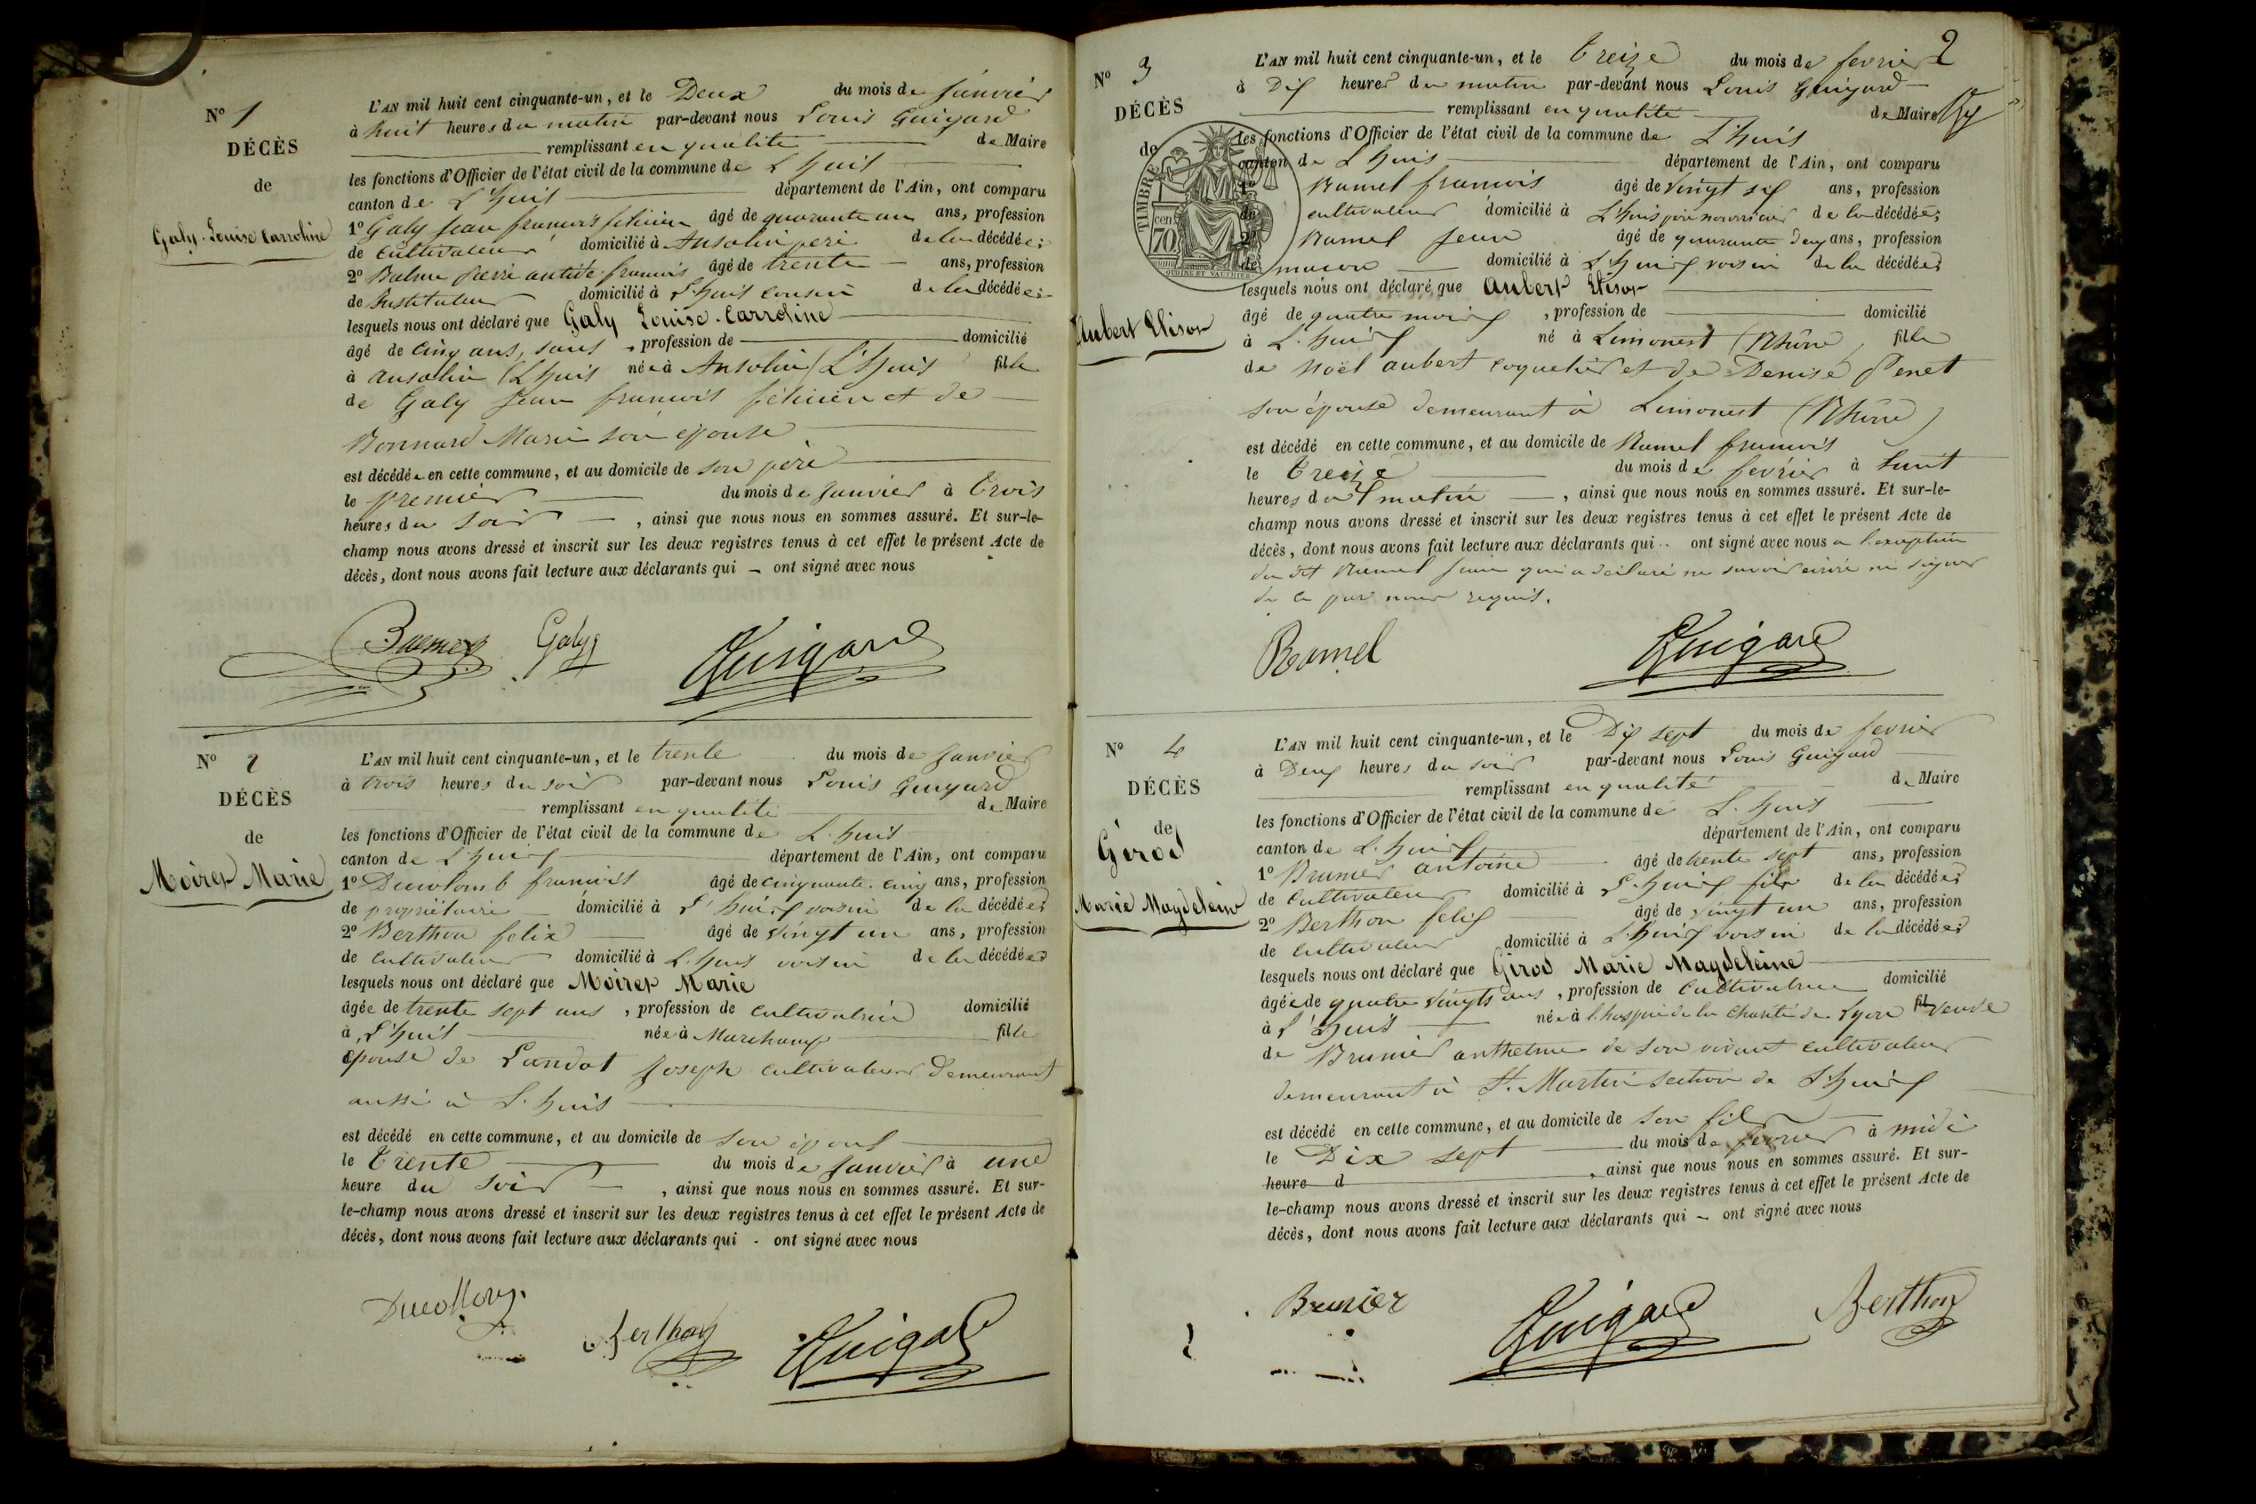 N° 1
DÉCÈS
de
Galy Louise Carroline
L'AN mil huit cent cinquante-un, et le Deux du mois de janvier
à huit heures du matin par-devant nous Louis Guigard
remplissant en qualité de Maire
les fonctions d'Officier de l'état civil de la commune de L'huis
canton de L'huis département de l'Ain, ont comparu
1° Galy jean francois félicien âgé de quarante un ans, profession
de cultivateur domicilié à Ansolin père de la décédée;
2° Balme françois âgé de trente ans, profession
de Instituteur domicilié à L'huis cousin de la décédée;
lesquels nous ont déclaré que Galy Louise Carroline
âgé de cinq ans, sans profession de domicilié
à ansolin (L'huis née à Ansolin (L'huis fille
de Galy jean francois félicien et de
Bonnard Marie son épouse
est décédée en cette commune, et au domicile de son père
le premier du mois de janvier à trois
heures du soir, ainsi que nous nous en sommes assuré. Et sur-le-
champ nous avons dressé et inscrit sur les deux registres tenus à cet effet le présent Acte de
décès, dont nous avons fait lecture aux déclarants qui — ont signé avec nous
Galy Guigard
N° 2
DÉCÈS
de
Moiret Marie
L'AN mil huit cent cinquante-un, et le trente du mois de janvier
à trois heures du soir par-devant nous Louis Guigard
remplissant en qualité de Maire
les fonctions d'Officier de l'état civil de la commune de L'huis
canton de L'huis département de l'Ain, ont comparu
1° Ducolomb francois âgé de cinquante cinq ans, profession
de propriétaire domicilié à L'huis voisin de la décédée;
2° Berthon felix âgé de vingt un ans, profession
de cultivateur domicilié à L'huis voisin de la décédée;
lesquels nous ont déclaré que Moiret Marie
âgée de trente sept ans, profession de cultivatrice domicilié
à L'huis née à Marchamp fille
épouse de Landot joseph cultivateur demeurant
aussi à L'huis
est décédé en cette commune, et au domicile de son époux
le trente du mois de janvier à une
heure du soir, ainsi que nous nous en sommes assuré. Et sur-
le-champ nous avons dressé et inscrit sur les deux registres tenus à cet effet le présent Acte de
décès, dont nous avons fait lecture aux déclarants qui - ont signé avec nous
Berthon Guigard
2
N° 3
DÉCÈS
de
TIMBRE
cent
70
OUDINÉ ET VAUTHIER
Aubert Elison
L'AN mil huit cent cinquante-un, et le treize du mois de fevrier
à Dix heures du matin par-devant nous Louis Guigard
remplissant en qualité de Maire
les fonctions d'Officier de l'état civil de la commune de L'huis
canton de L'huis département de l'Ain, ont comparu
1° Ramel francois âgé de vingt six ans, profession
de cultivateur domicilié à L'huis père nourricier de la décédée;
2° Ramel jean âgé de quarante deux ans, profession
de macon domicilié à L'huis voisin de la décédée;
lesquels nous ont déclaré que Aubert Elison
âgé de quatre mois, profession de domicilié
à L'huis né à Limonest (Rhône) fille
de Noël aubert coquetier et de Denise Penet
son épouse demeurant à Limonest (Rhône)
est décédé en cette commune, et au domicile de Ramel francois
le treize du mois de fevrier à huit
heures du matin, ainsi que nous nous en sommes assuré. Et sur-le-
champ nous avons dressé et inscrit sur les deux registres tenus à cet effet le présent Acte de
décès, dont nous avons fait lecture aux déclarants qui ont signé avec nous a l'exception
du dit Ramel jean qui a déclaré ne savoir écrire ni signer
de ce par nous requis.
Ramel Guigard
N° 4
DÉCÈS
de
Girod
Marie Magdeleine
L'AN mil huit cent cinquante-un, et le Dix sept du mois de fevrier
à Deux heures du soir par-devant nous Louis Guigard
remplissant en qualité de Maire
les fonctions d'Officier de l'état civil de la commune de L'huis
canton de L'huis département de l'Ain, ont comparu
1° Brunier antoine âgé de trente sept ans, profession
de cultivateur domicilié à L'huis fils de la décédée;
2° Berthon felix âgé de vingt un ans, profession
de cultivateur domicilié à L'huis voisin de la décédée;
lesquels nous ont déclaré que Girod Marie Magdeleine
âgée de quatre vingts ans, profession de cultivatrice domicilié
à L'huis née à l'hospice de la charité de Lyon fil veuve
de Brunier anthelme de son vivant cultivateur
demeurant à St. Martin section de L'huis
est décédé en cette commune, et au domicile de son fils
le Dix sept du mois de fevrier à midi
heure d, ainsi que nous nous en sommes assuré. Et sur-
le-champ nous avons dressé et inscrit sur les deux registres tenus à cet effet le présent Acte de
décès, dont nous avons fait lecture aux déclarants qui — ont signé avec nous
Brunier Guigard Berthon